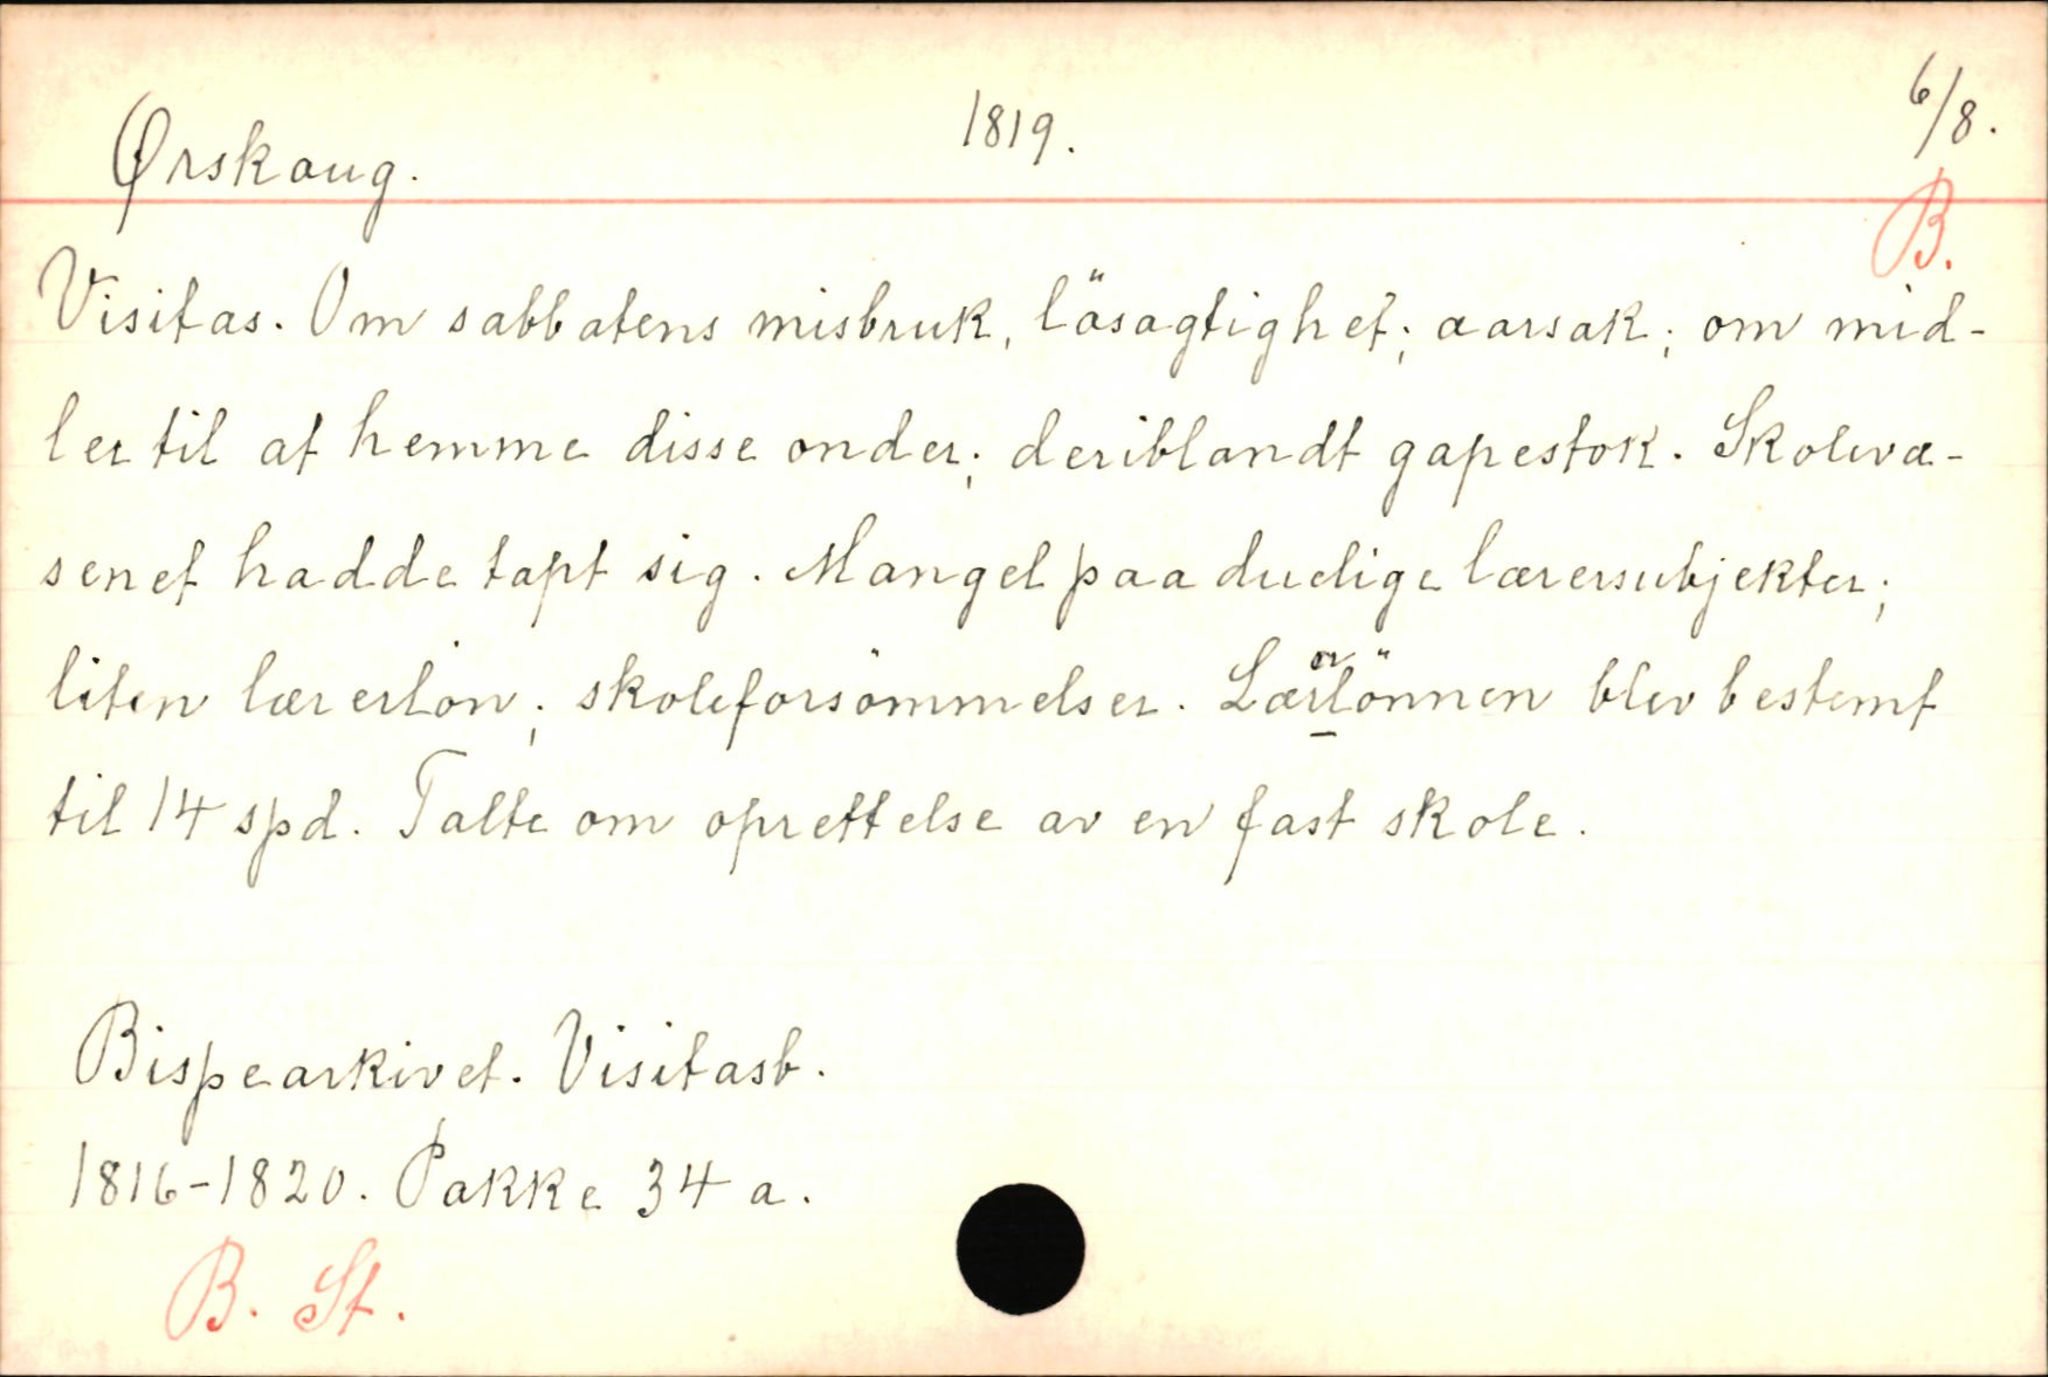 Ørskaug. 1819. 6/8.
B.
Visitas. Om sabbatens misbruk, lösagtighet; aarsak; om mid-
ler til at hemme disse onder; deriblandt gapestok. Skolevæ-
senet hadde tapt sig. Mangel paa duelige lærersubjekter;
liten lærerlön; skoleforsömmelser. Lærerlönnen blev bestemt
til 14 spd. Talte om oprettelse av en fast skole.
Bispearkivet. Visitasb.
1816-1820. Pakke 34 a.
B. St.